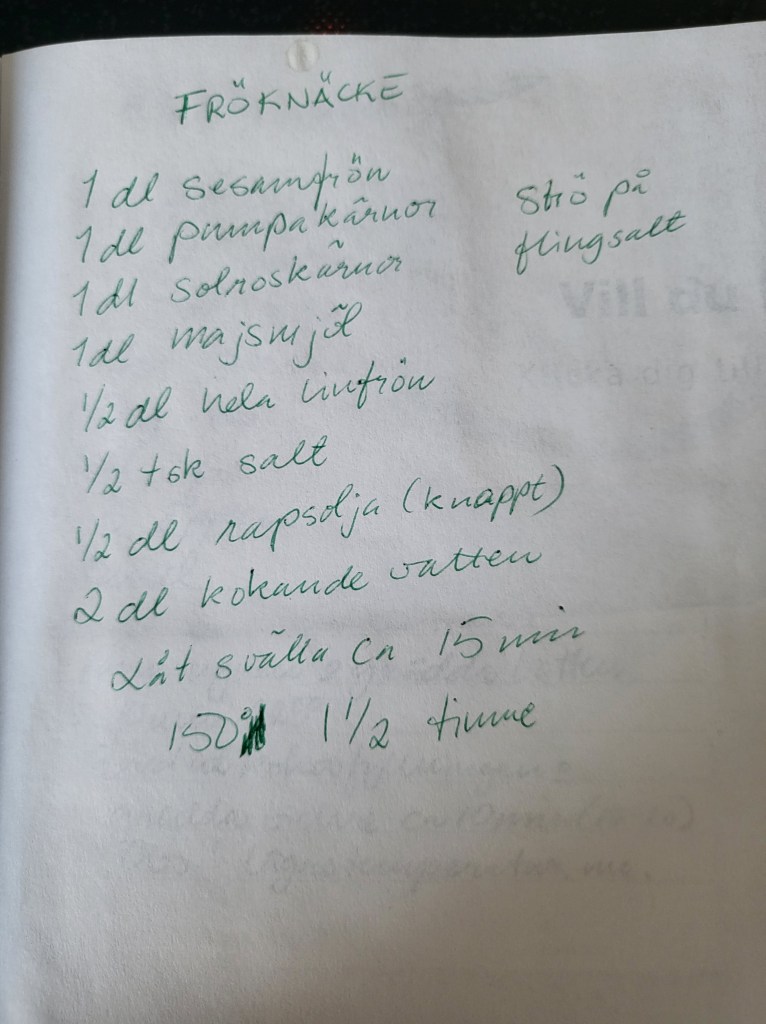 FRÖKNÄCKE
1 dl sesamfrön
1 dl pumpakärnor
1 dl solroskärnor
1 dl majsmjöl
1/2 dl hela linfrön
1/2 tsk salt
1/2 dl rapsolja (knappt)
2 dl kokande vatten
Låt svälla ca 15 min
150° 1 1/2 timme
Strö på
flingsalt
Vill du